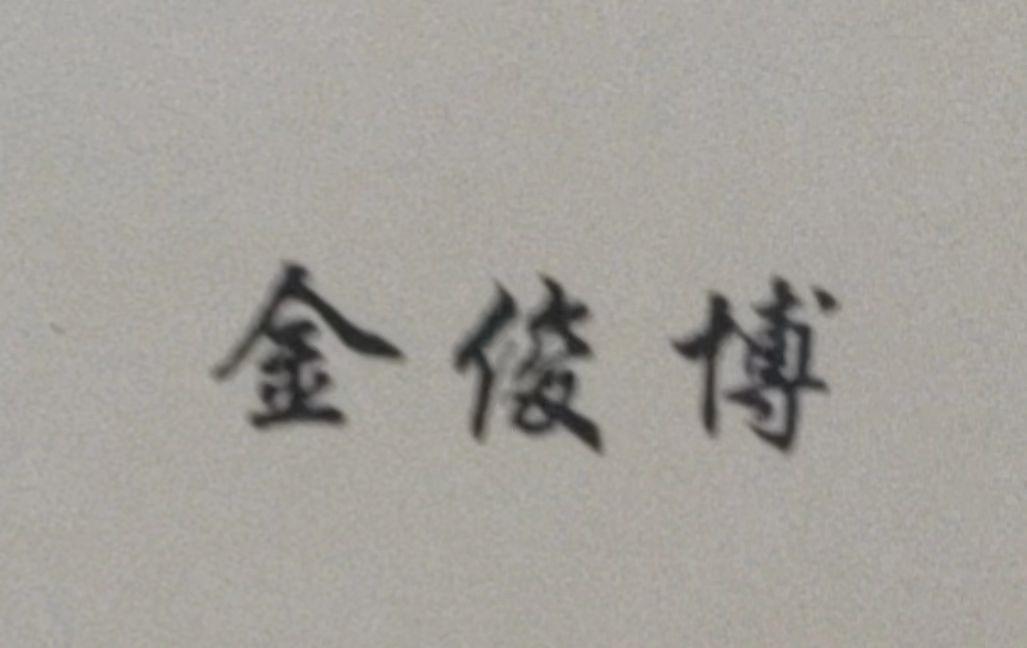 金俊博